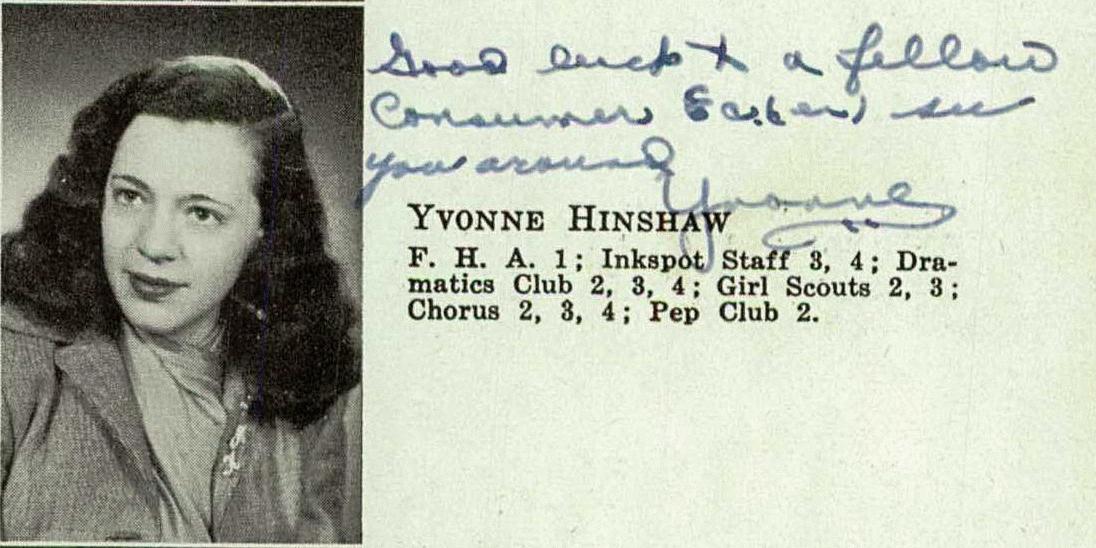 Good luck to a fellow
Consumer Ec. (er) see
you around
Yvonne
YVONNE HINSHAW
F. H. A. 1; Inkspot Staff 3, 4; Dra-
matics Club 2, 3, 4; Girl Scouts 2, 3;
Chorus 2, 3, 4; Pep Club 2.